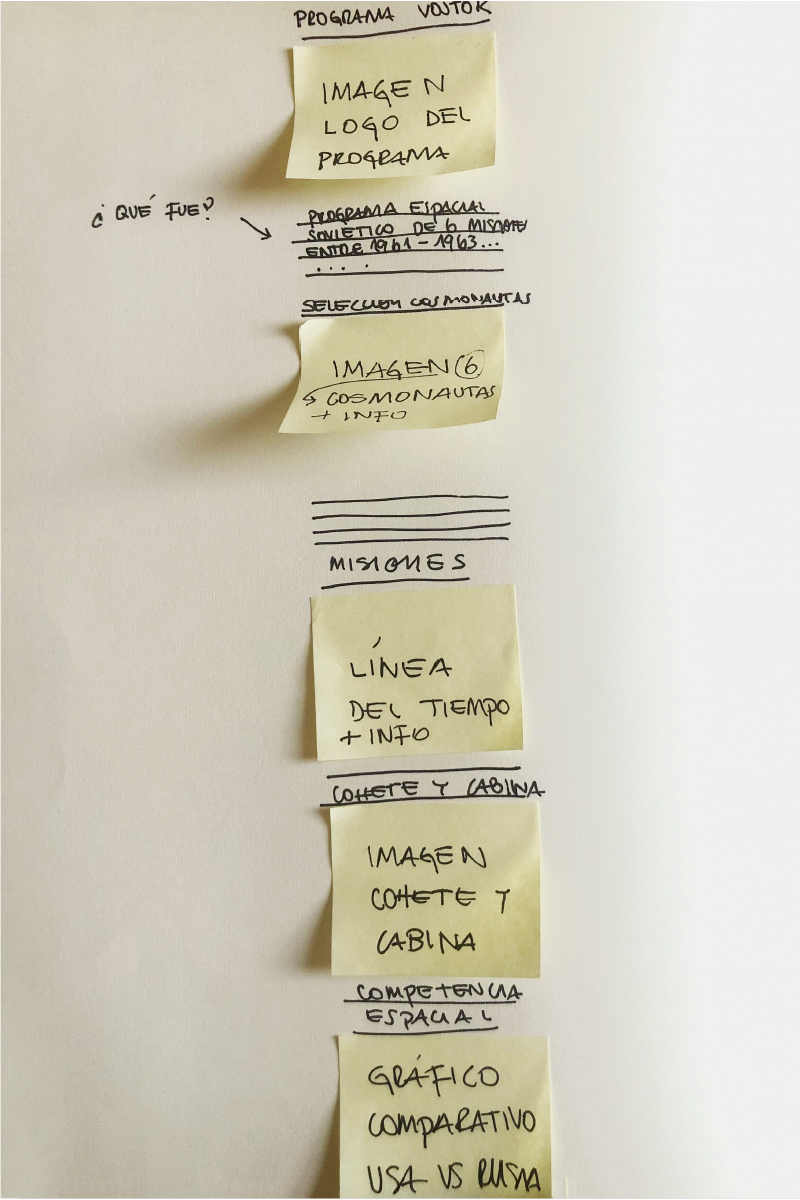 PROGRAMA VOSTOK
IMAGEN
LOGO DEL
PROGRAMA
¿QUÉ FUE?
PROGRAMA ESPACIAL
SOVIETICO DE 6 MISIONES
ENTRE 1961-1963...
....
SELECCION COSMONAUTAS
IMAGEN 6
COSMONAUTAS
+ INFO
MISIONES
LÍNEA
DEL TIEMPO
+ INFO
COHETE Y CABINA
IMAGEN
COHETE Y
CABINA
COMPETENCIA
ESPACIAL
GRÁFICO
COMPARATIVO
USA VS RUSIA